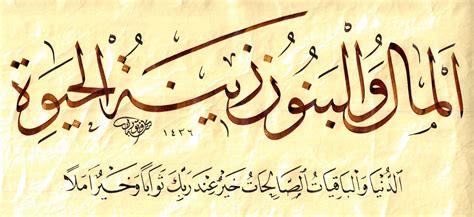 المال والبنون زينة الحيوة
١٤٣٦
الدنيا والباقيات الصالحات خير عند ربك ثوابا وخير أملا